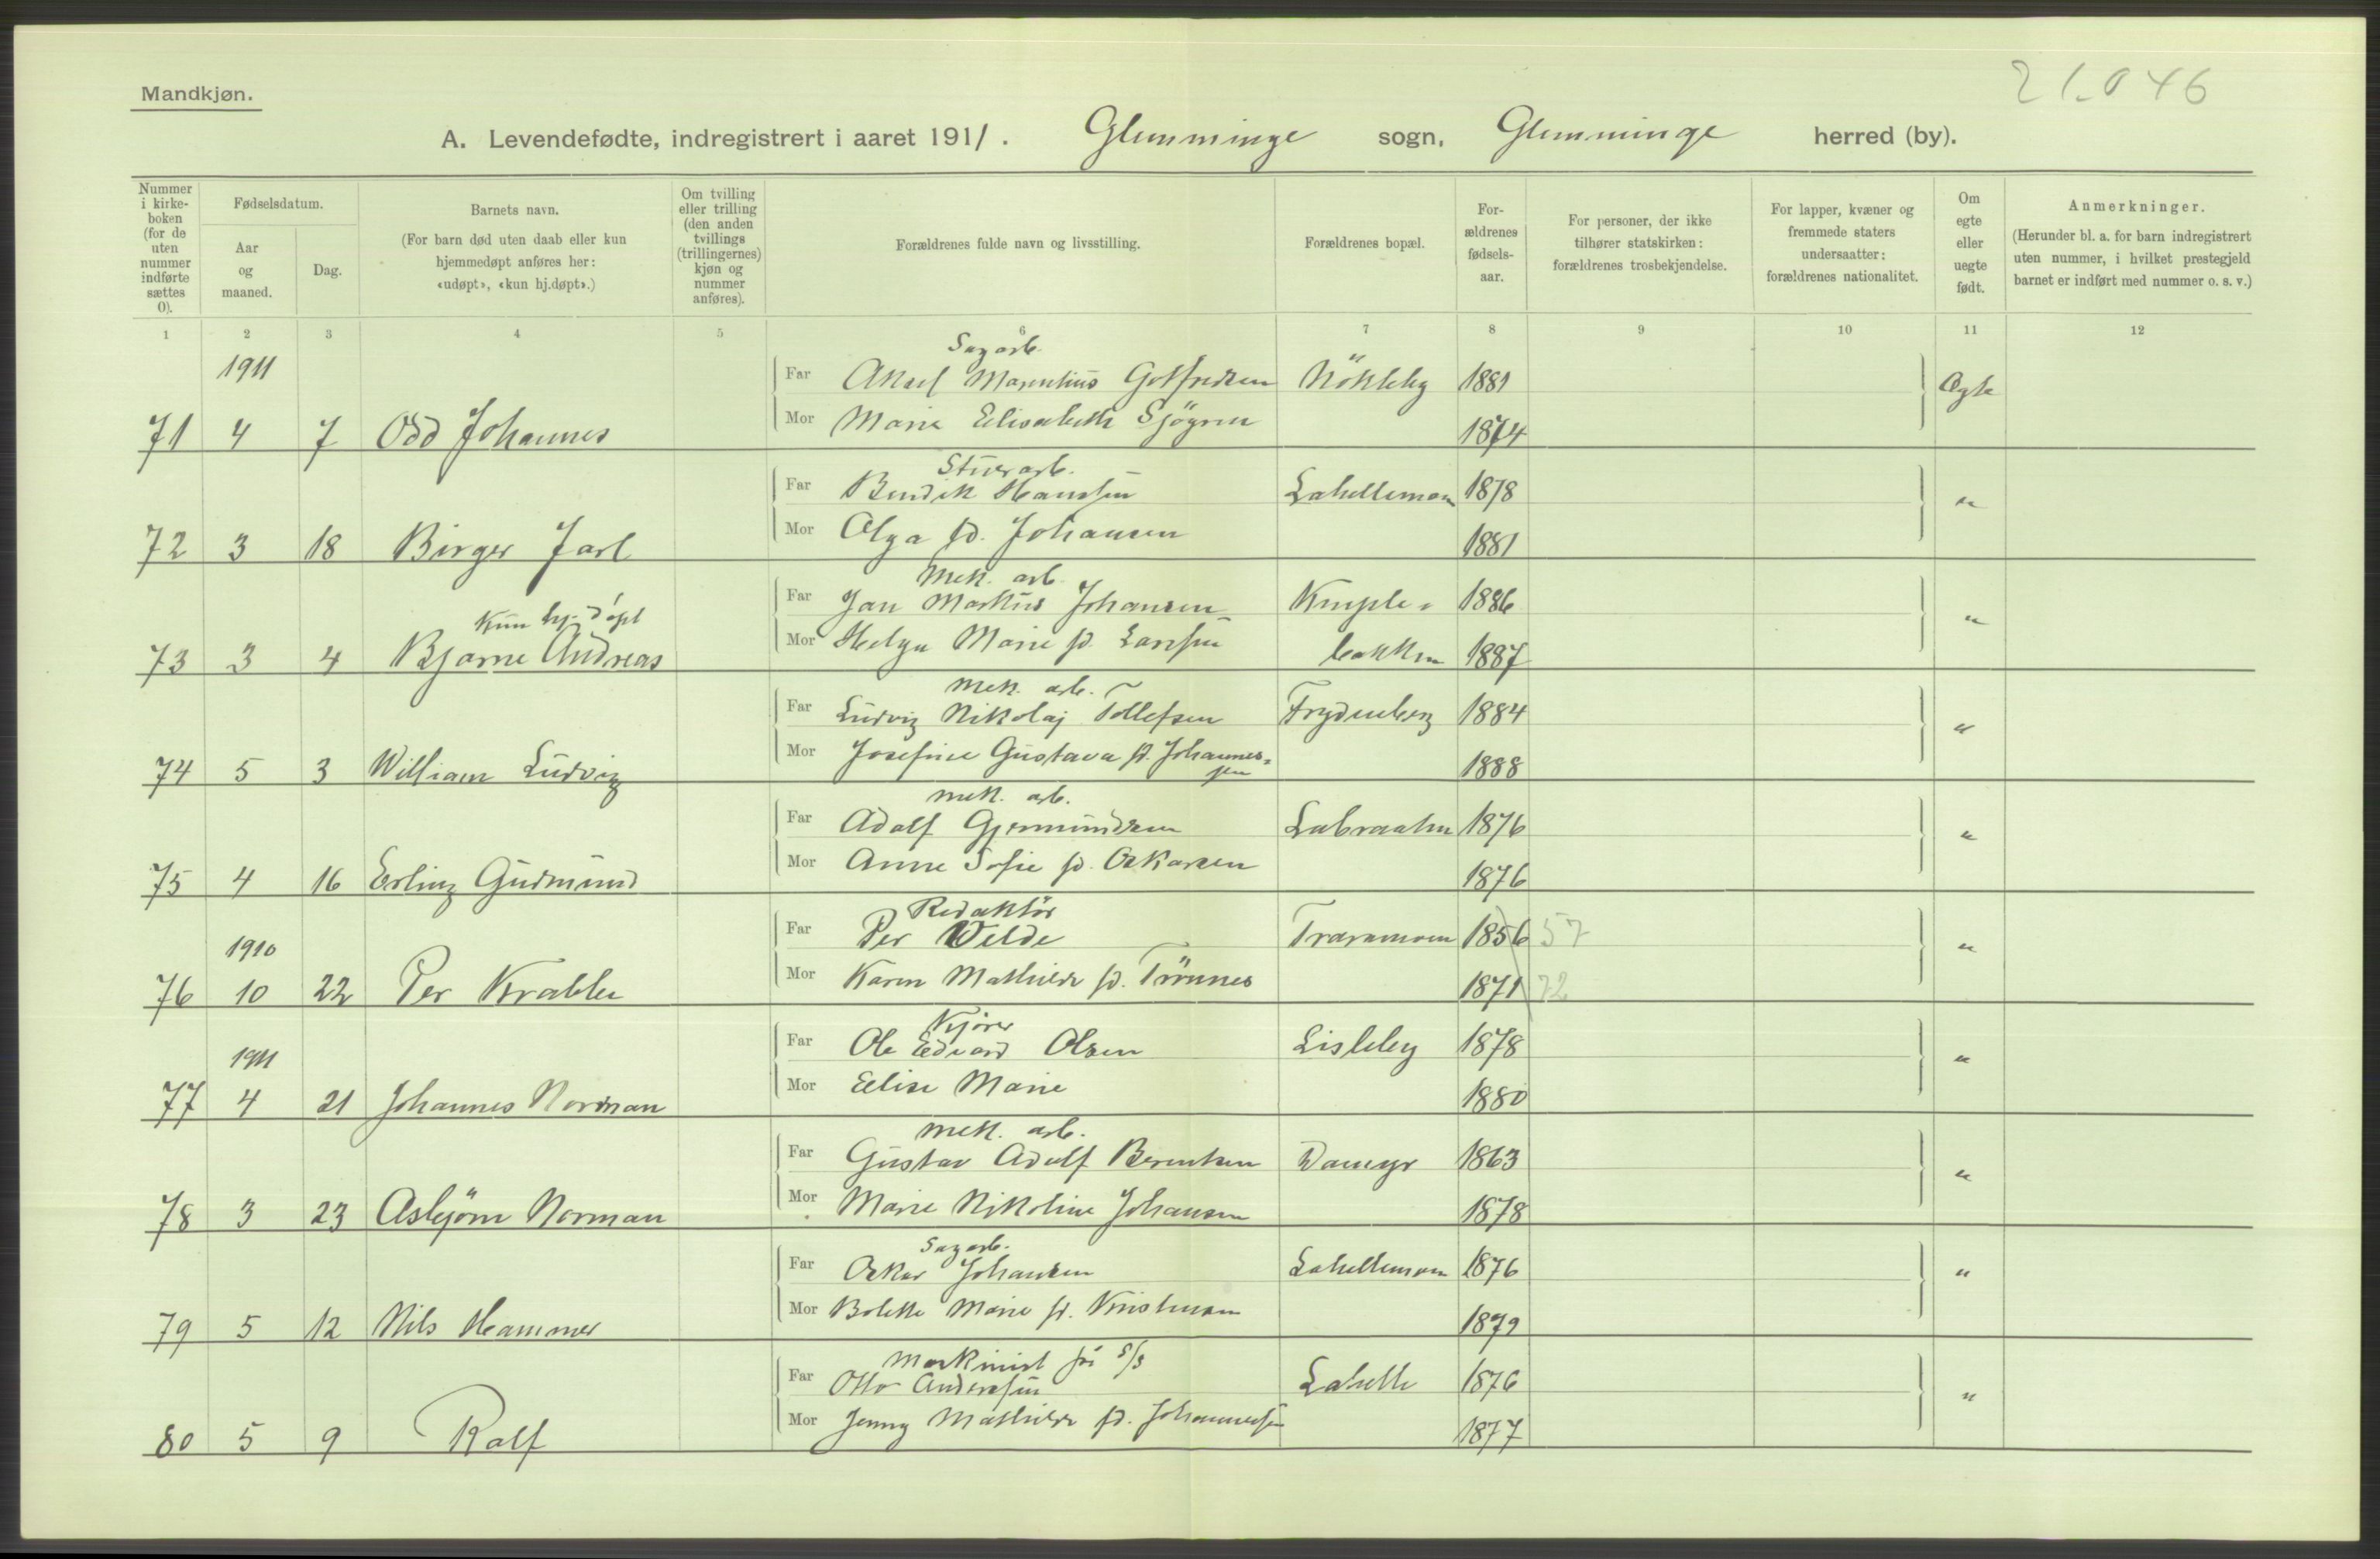 21.046
Mandkjøn.
A. Levendefødte, indregistrert i aaret 1911. Glemminge sogn, Glemminge herred (by).
Nummer i kirke- boken (for de uten nummer indførte sættes 0).
Fødselsdatum.
Aar og maaned.
Dag.
Barnets navn.
(For barn død uten daab eller kun hjemmedøpt anføres her: «udøpt», «kun hj.døpt».)
Om tvilling eller trilling (den anden tvillings (trillingernes) kjøn og nummer anføres).
Forældrenes fulde navn og livsstilling.
Forældrenes bopæl.
For- ældrenes fødsels- aar.
For personer, der ikke tilhører statskirken: forældrenes trosbekjendelse.
For lapper, kvæner og fremmede staters undersaatter: forældrenes nationalitet.
Om egte eller uegte født.
Anmerkninger.
(Herunder bl. a. for barn indregistrert uten nummer, i hvilket prestegjeld barnet er indført med nummer o. s. v.)
1 2 3 4 5 6 7 8 9 10 11 12
1911
Sagarb.
Far Aksel Marentius Gotfredsen Nökleby 1881 Ægte
Mor Marie Elisabeth Sjögren 1874
71 4 7 Odd Johannes
Stuerarb.
Far Bendik Hansen Lahellemoen 1878 "
Mor Olga fd. Johansen 1881
72 3 18 Birger Jarl
Mek. arb.
Far Jan Markus Johansen Kniple= 1886 "
Kun hj. döpt
Mor Helga Marie fd. Larsen bakken 1887
73 3 4 Bjarne Andreas
Mek. arb.
Far Ludvig Nikolaj Tollefsen Frydenberg 1884 "
Mor Josefine Gustava fd. Johannes= sen 1888
74 5 3 William Ludvig
Mek. arb.
Far Adolf Gjermundsen Labraaten 1876 "
Mor Anne Sofie fd. Oskarsen 1876
75 4 16 Erling Gudmund
Redaktör
Far Per Welde Traramoen 1856 57 "
1910
Mor Karen Mathilde fd. Trönnes 1871 72
76 10 22 Per Krabbe
Kjører
Far Ole Edvard Olsen Lisleby 1878 "
1911
Mor Elise Marie 1880
77 4 21 Johannes Norman
Mek. arb.
Far Gustav Adolf Berentsen Damyr 1863 "
Mor Marie Nikoline Johansen 1878
78 3 23 Asbjörn Norman
Sagarb.
Far Oskar Johansen Lahellemoen 1876 "
Mor Bolette Marie fd. Kristensen 1879
79 5 12 Nils Hammer
Maskinist på S/S
Far Otto Andersen Lahelle 1876 "
Mor Jenny Mathilde fd. Johannesen 1877
80 5 9 Rolf